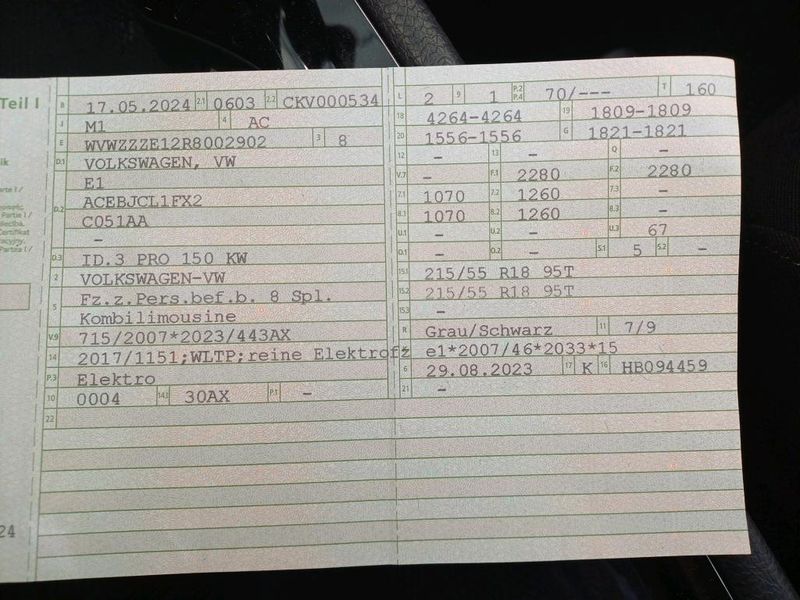 Teil I
B 17.05.2024 2.1 0603 2.2 CKV000534
J M1 4 AC
E WVWZZZE12R8002902 3 8
D.1 VOLKSWAGEN, VW
E1
D.2 ACEBJCL1FX2
C051AA
–
D.3 ID.3 PRO 150 KW
2 VOLKSWAGEN-VW
5 Fz.z.Pers.bef.b. 8 Spl.
Kombilimousine
V.9 715/2007*2023/443AX
14 2017/1151;WLTP;reine Elektrofz
P.3 Elektro
10 0004 14.1 30AX P.1 –
22
L 2 9 1 P.2 P.4 70/--- T 160
18 4264-4264 19 1809-1809
20 1556-1556 G 1821-1821
12 – 13 – Q –
V.7 – F.1 2280 F.2 2280
7.1 1070 7.2 1260 7.3 –
8.1 1070 8.2 1260 8.3 –
U.1 – U.2 – U.3 67
O.1 – O.2 – S.1 5 S.2 –
15.1 215/55 R18 95T
15.2 215/55 R18 95T
15.3 –
R Grau/Schwarz 11 7/9
K e1*2007/46*2033*15
6 29.08.2023 17 K 16 HB094459
21 –
24